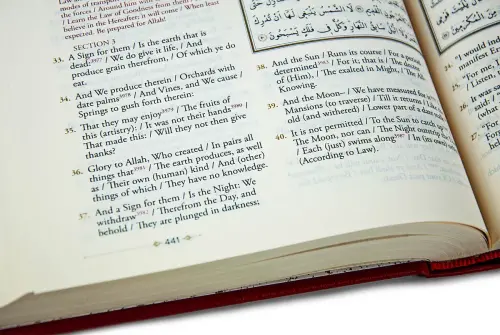 modes of transport
the forces / Around him with
/ Learn the Law of Goodness from them /
believe in the Hereafter; it will come / When least
expected. Be prepared for Allah!
SECTION 3
33. A Sign for them / Is the earth that is
dead:³⁹⁷⁷ / We do give it life, / And
produce grain therefrom, / Of which ye do
eat.
34. And We produce therein / Orchards with
date palms³⁹⁷⁸ / And Vines, and We cause /
Springs to gush forth therein:
35. That they may enjoy³⁹⁷⁹ / The fruits of
this (artistry): / It was not their hands³⁹⁸⁰ /
That made this: / Will they not then give
thanks?
36. Glory to Allah, Who created / In pairs all
things that³⁹⁸¹ / The earth produces, as well
as / Their own (human) kind / And (other)
things of which / They have no knowledge.
37. And a Sign for them / Is the Night: We
withdraw³⁹⁸² / Therefrom the Day, and
behold / They are plunged in darkness;
441
لَا الشَّمْسُ يَنبَغِي لَهَا أَن تُدْرِكَ
وَكُلٌّ فِي فَلَكٍ يَسْبَحُونَ
38. And the Sun / Runs its course / For a period
determined³⁹⁸³ / For it; that is / The decree
of (Him), / The exalted in Might, / The All-
Knowing.
39. And the Moon– / We have measured for
Mansions (to traverse) / Till it returns / Like
old (and withered) / Lower part of a date
40. It is not permitted / To the Sun to catch up
The Moon, nor can / The Night outstrip
/ Each (just) swims along / In (its own)
(According to Law).
"I would
manifest
For
It was
said,